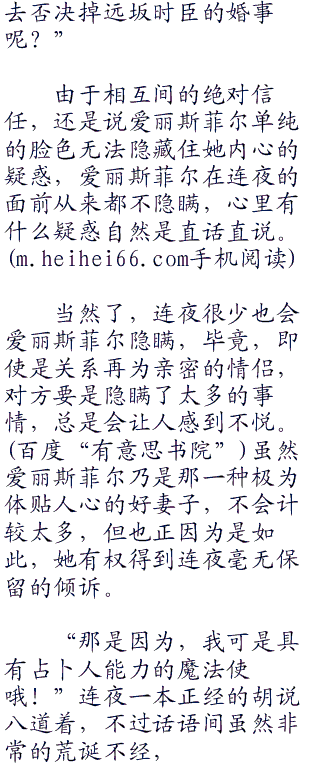 去否决掉远坂时臣的婚事
呢？”
由于相互间的绝对信
任，还是说爱丽斯菲尔单纯
的脸色无法隐藏住她内心的
疑惑，爱丽斯菲尔在连夜的
面前从来都不隐瞒，心里有
什么疑惑自然是直话直说。
(m.heihei66.com手机阅读)
当然了，连夜很少也会
爱丽斯菲尔隐瞒，毕竟，即
使是关系再为亲密的情侣，
对方要是隐瞒了太多的事
情，总是会让人感到不悦。
(百度“有意思书院”)虽然
爱丽斯菲尔乃是那一种极为
体贴人心的好妻子，不会计
较太多，但也正因为是如
此，她有权得到连夜毫无保
留的倾诉。
“那是因为，我可是具
有占卜人能力的魔法使
哦！”连夜一本正经的胡说
八道着，不过话语间虽然非
常的荒诞不经，